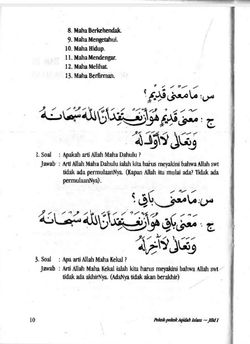 8. Maha Berkehendak.
9. Maha Mengetahui.
10. Maha Hidup.
11. Maha Mendengar.
12. Maha Melihat.
13. Maha Berfirman.
س: مَا مَعْنَى قَدِيْمٌ؟
ج: مَعْنَى قَدِيْمٍ هُوَ أَنْ نَعْتَقِدَ أَنَّ اللهَ سُبْحَانَهُ
وَتَعَالَى لَا أَوَّلَ لَهُ
2. Soal : Apakah arti Allah Maha Dahulu ?
Jawab : Arti Allah Maha Dahulu ialah kita harus meyakini bahwa Allah swt
tidak ada permulaanNya. (Kapan Allah itu mulai ada? Tidak ada
permulaanNya).
س: مَا مَعْنَى بَاقِي؟
ج: مَعْنَى بَاقِي هُوَ أَنْ نَعْتَقِدَ أَنَّ اللهَ سُبْحَانَهُ
وَتَعَالَى لَا آخِرَ لَهُ
3. Soal : Apa arti Allah Maha Kekal ?
Jawab : Arti Allah Maha Kekal ialah kita harus meyakini bahwa Allah swt
tidak ada akhirNya. (AdaNya tidak akan berakhir)
10
Pokok-pokok Aqidah Islam — Jilid I